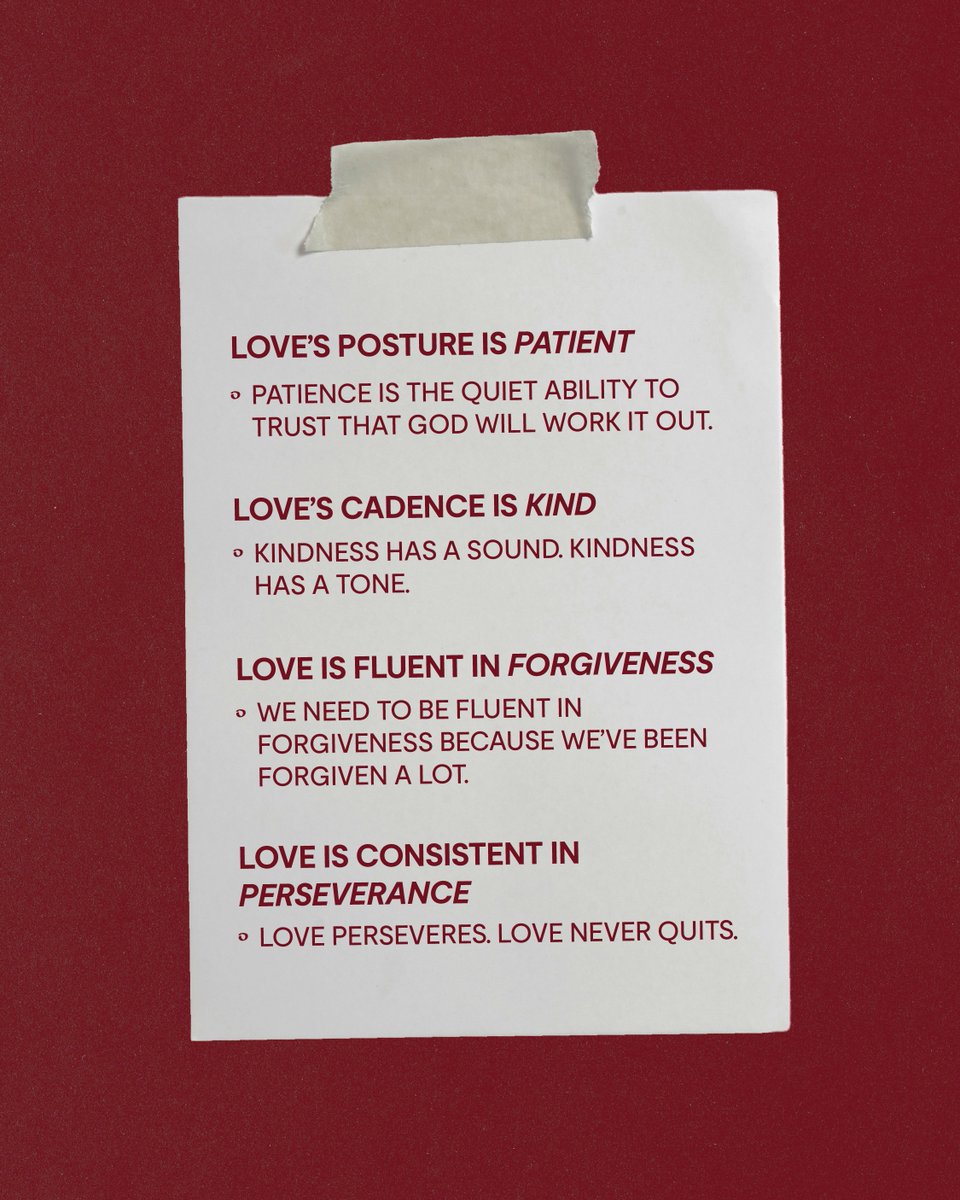 LOVE'S POSTURE IS PATIENT
PATIENCE IS THE QUIET ABILITY TO
TRUST THAT GOD WILL WORK IT OUT.
LOVE'S CADENCE IS KIND
KINDNESS HAS A SOUND. KINDNESS
HAS A TONE.
LOVE IS FLUENT IN FORGIVENESS
WE NEED TO BE FLUENT IN
FORGIVENESS BECAUSE WE'VE BEEN
FORGIVEN A LOT.
LOVE IS CONSISTENT IN
PERSEVERANCE
LOVE PERSEVERES. LOVE NEVER QUITS.